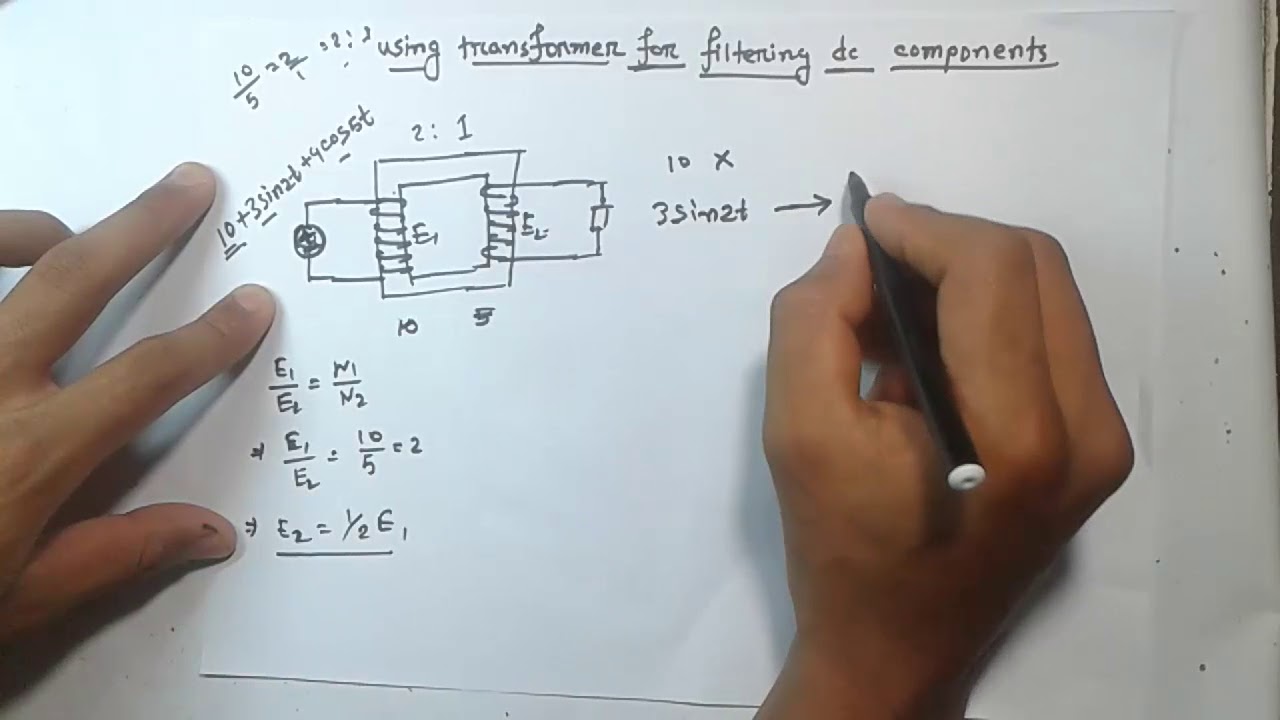 using transformer for filtering dc components
10/5 = 2/1 = 2:1
10+3sin2t+4cos5t
2: 1
E1
E2
10
5
10 x
3sin2t →
E1/E2 = N1/N2
⇒ E1/E2 = 10/5 = 2
⇒ E2 = 1/2 E1